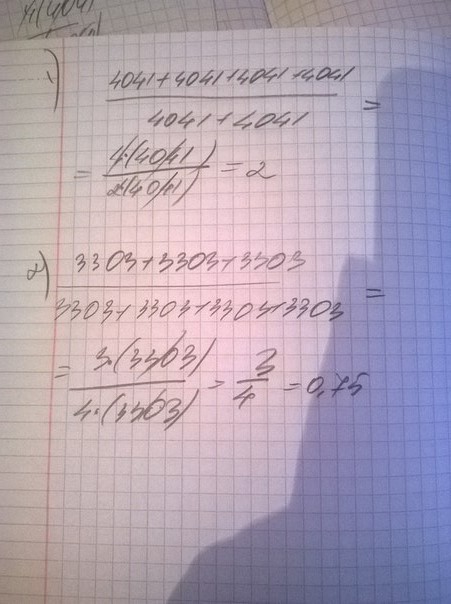 1)
4041+4041+4041+4041
4041+4041
=
= 4·(4041)
2·(4041)
= 2
2)
3303+3303+3303
3303+3303+3303+3303
=
= 3·(3303)
4·(3303)
= 3
4
= 0,75